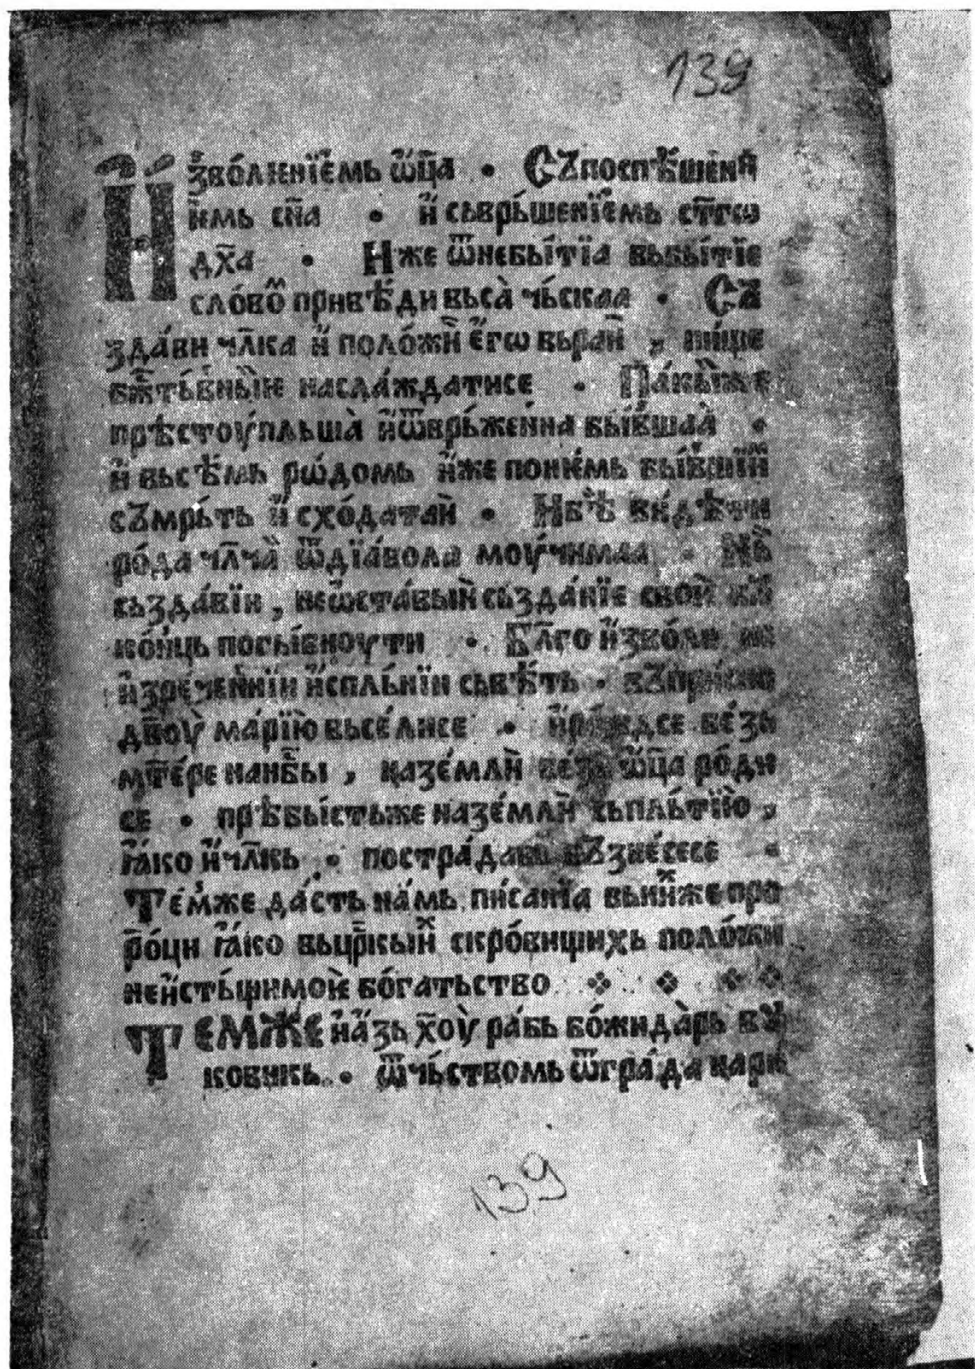 139
И҆зволѥнїемь ѿц҃а • Съпоспѣшени
ѥмь сн҃а • и҆ сьврь́шенїемь ст҃гѡ
дх҃а • Иже ѿнебы́тїа вьбы́тїе
сло́вѡⷨ приве́ди вьса̀ чьскаа • Съ
зда́ви чл҃ка и҆ поло́жи е҆гѡ вьраи҆ , пи́ще
бжⷭ҇ть́вныѥ насла́ждатисе • Па́кыже
прѣстоу́пльша̀ и҆ѿврь́женна бы́вшаа̀ •
и҆ вьсѣмь рѡ́домь и҆же понѥ́мь бы́вшїи
съмрь́ть и҆ схо́датаи • Небѣ ви́дѣти
ро́да чл҃ча̀ ѿдїа́вола моу́чимаа •
сьзда́вїи , неѡ҆ста́выи сьзда́нїе свое
ко́нць посы́вноути • Бл҃го и҆зво́ли
и҆зре́ченнїи и҆спль́нїи сьвѣ́ть •
дв҃оу́ ма́рїю вьсе́лисе • бе́зь
мт҃е́ре нанб҃ы , наземлѝ бе́зь ѿц҃а ро́ди
се • прѣбы́стьже назе́млѝ сьпль́тїю ,
ꙗ҆́ко и҆чл҃кь • постра́давь възне́сесе •
Те́мже да́сть на́мь писа́нїа вьни́хже про
р҃о́ци ꙗ҆́ко вьцр҃кыи҆х скро́вищихь поло́жи
неи҆сть́щимоѥ бо́гатьство
Те́мже и҆а҆́зь х҃оу̀ ра́бь бо́жида́рь вꙋ
ковикь • ѿчь́ствомь ѿгра́да нари
139